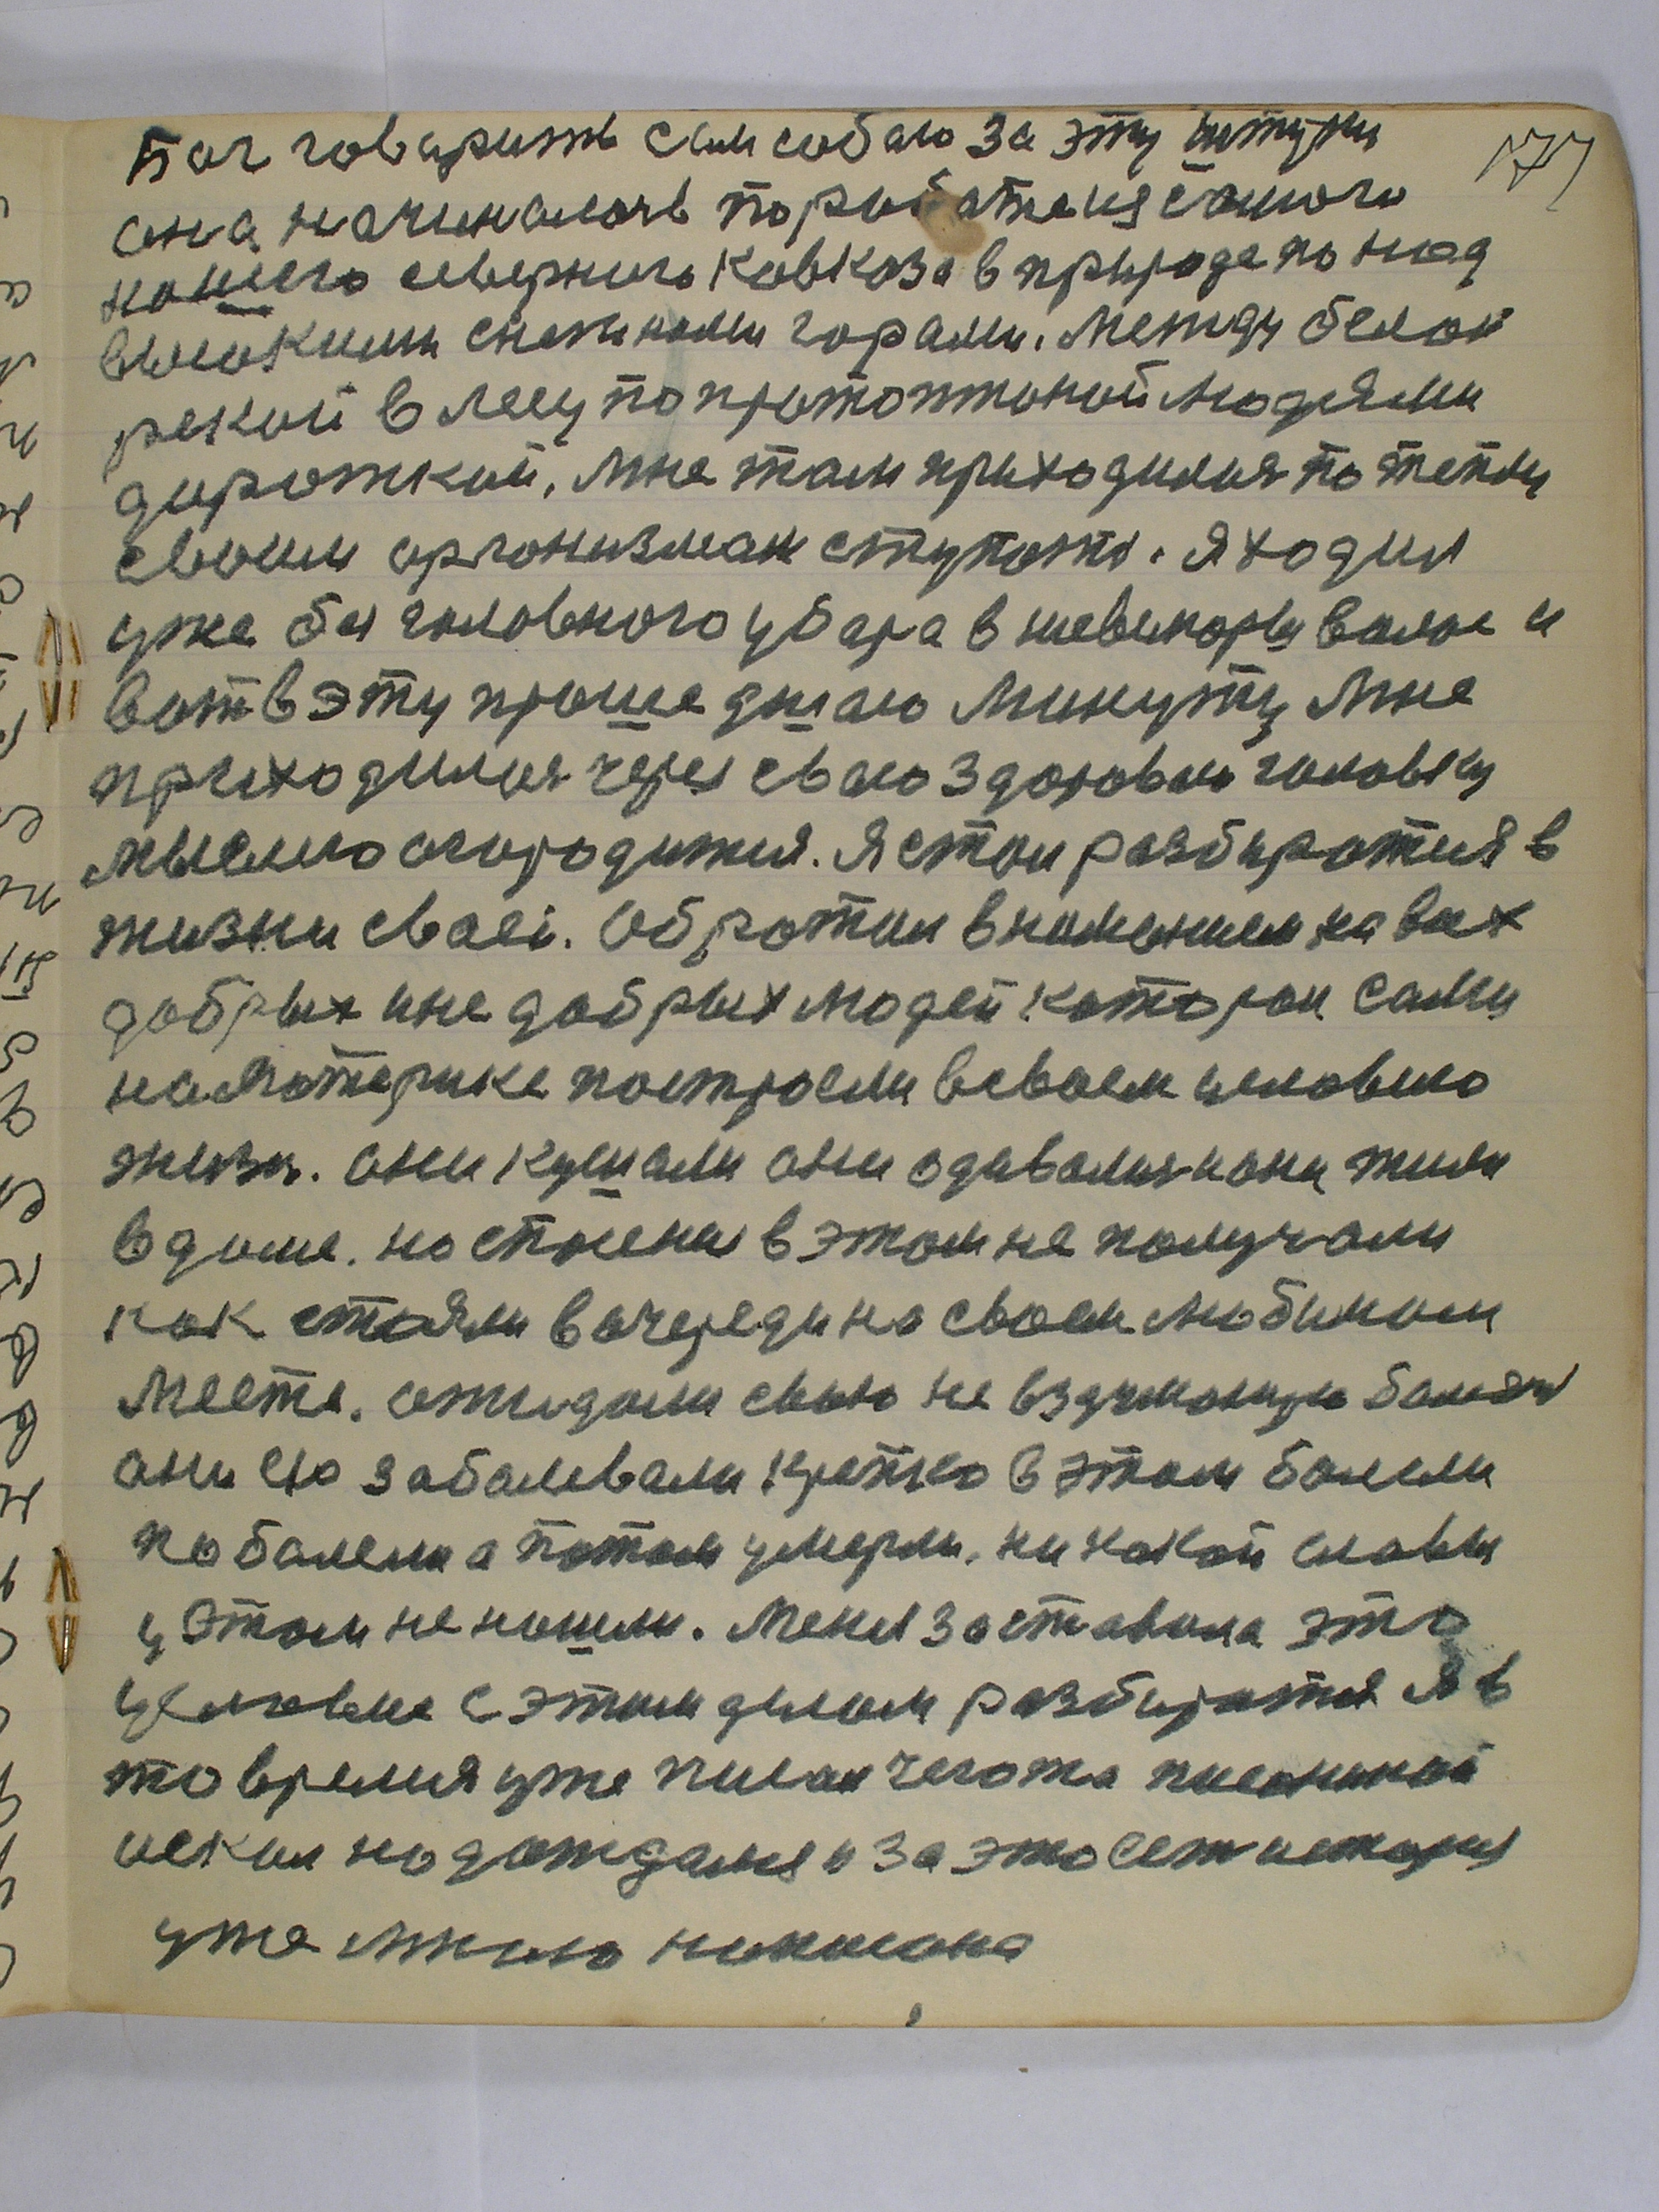 177
Бог говарить сам собаю за эту штуку
она начиналась порабатыся самого
нашего северного Кавказа в природе по над
высокими снежными горами. Между белой
рекой в лесу по протоптаной людями
дорожкой, мне там приходился по тепту
своим организмам ступать. Я ходил
уже без головного убара в шевелюры волос и
вот в эту прошедшаю минуту мне
приходился через сваю здоровую головку
мыслю огородится. Я стал разбиратся в
жизни сваей. Обратил внимением на всех
добрых и не добрых людей которои сами
на материке построели в своем условию
жизн. они кушали они одевались и они жили
в доме. но спасения в этом не получали
как стояли в очереди на своем любимом
месте. ожидали свою не вздуманую болязн
они ею заболевали крепко в этом болели
поболели а потом умерли. ни какой славы
у этом не нашли. Меня заставила это
условие с этом делом разбиратся я в
то время уже писал чегота писаниной
искал но дождался и за это сем история
уже много написана